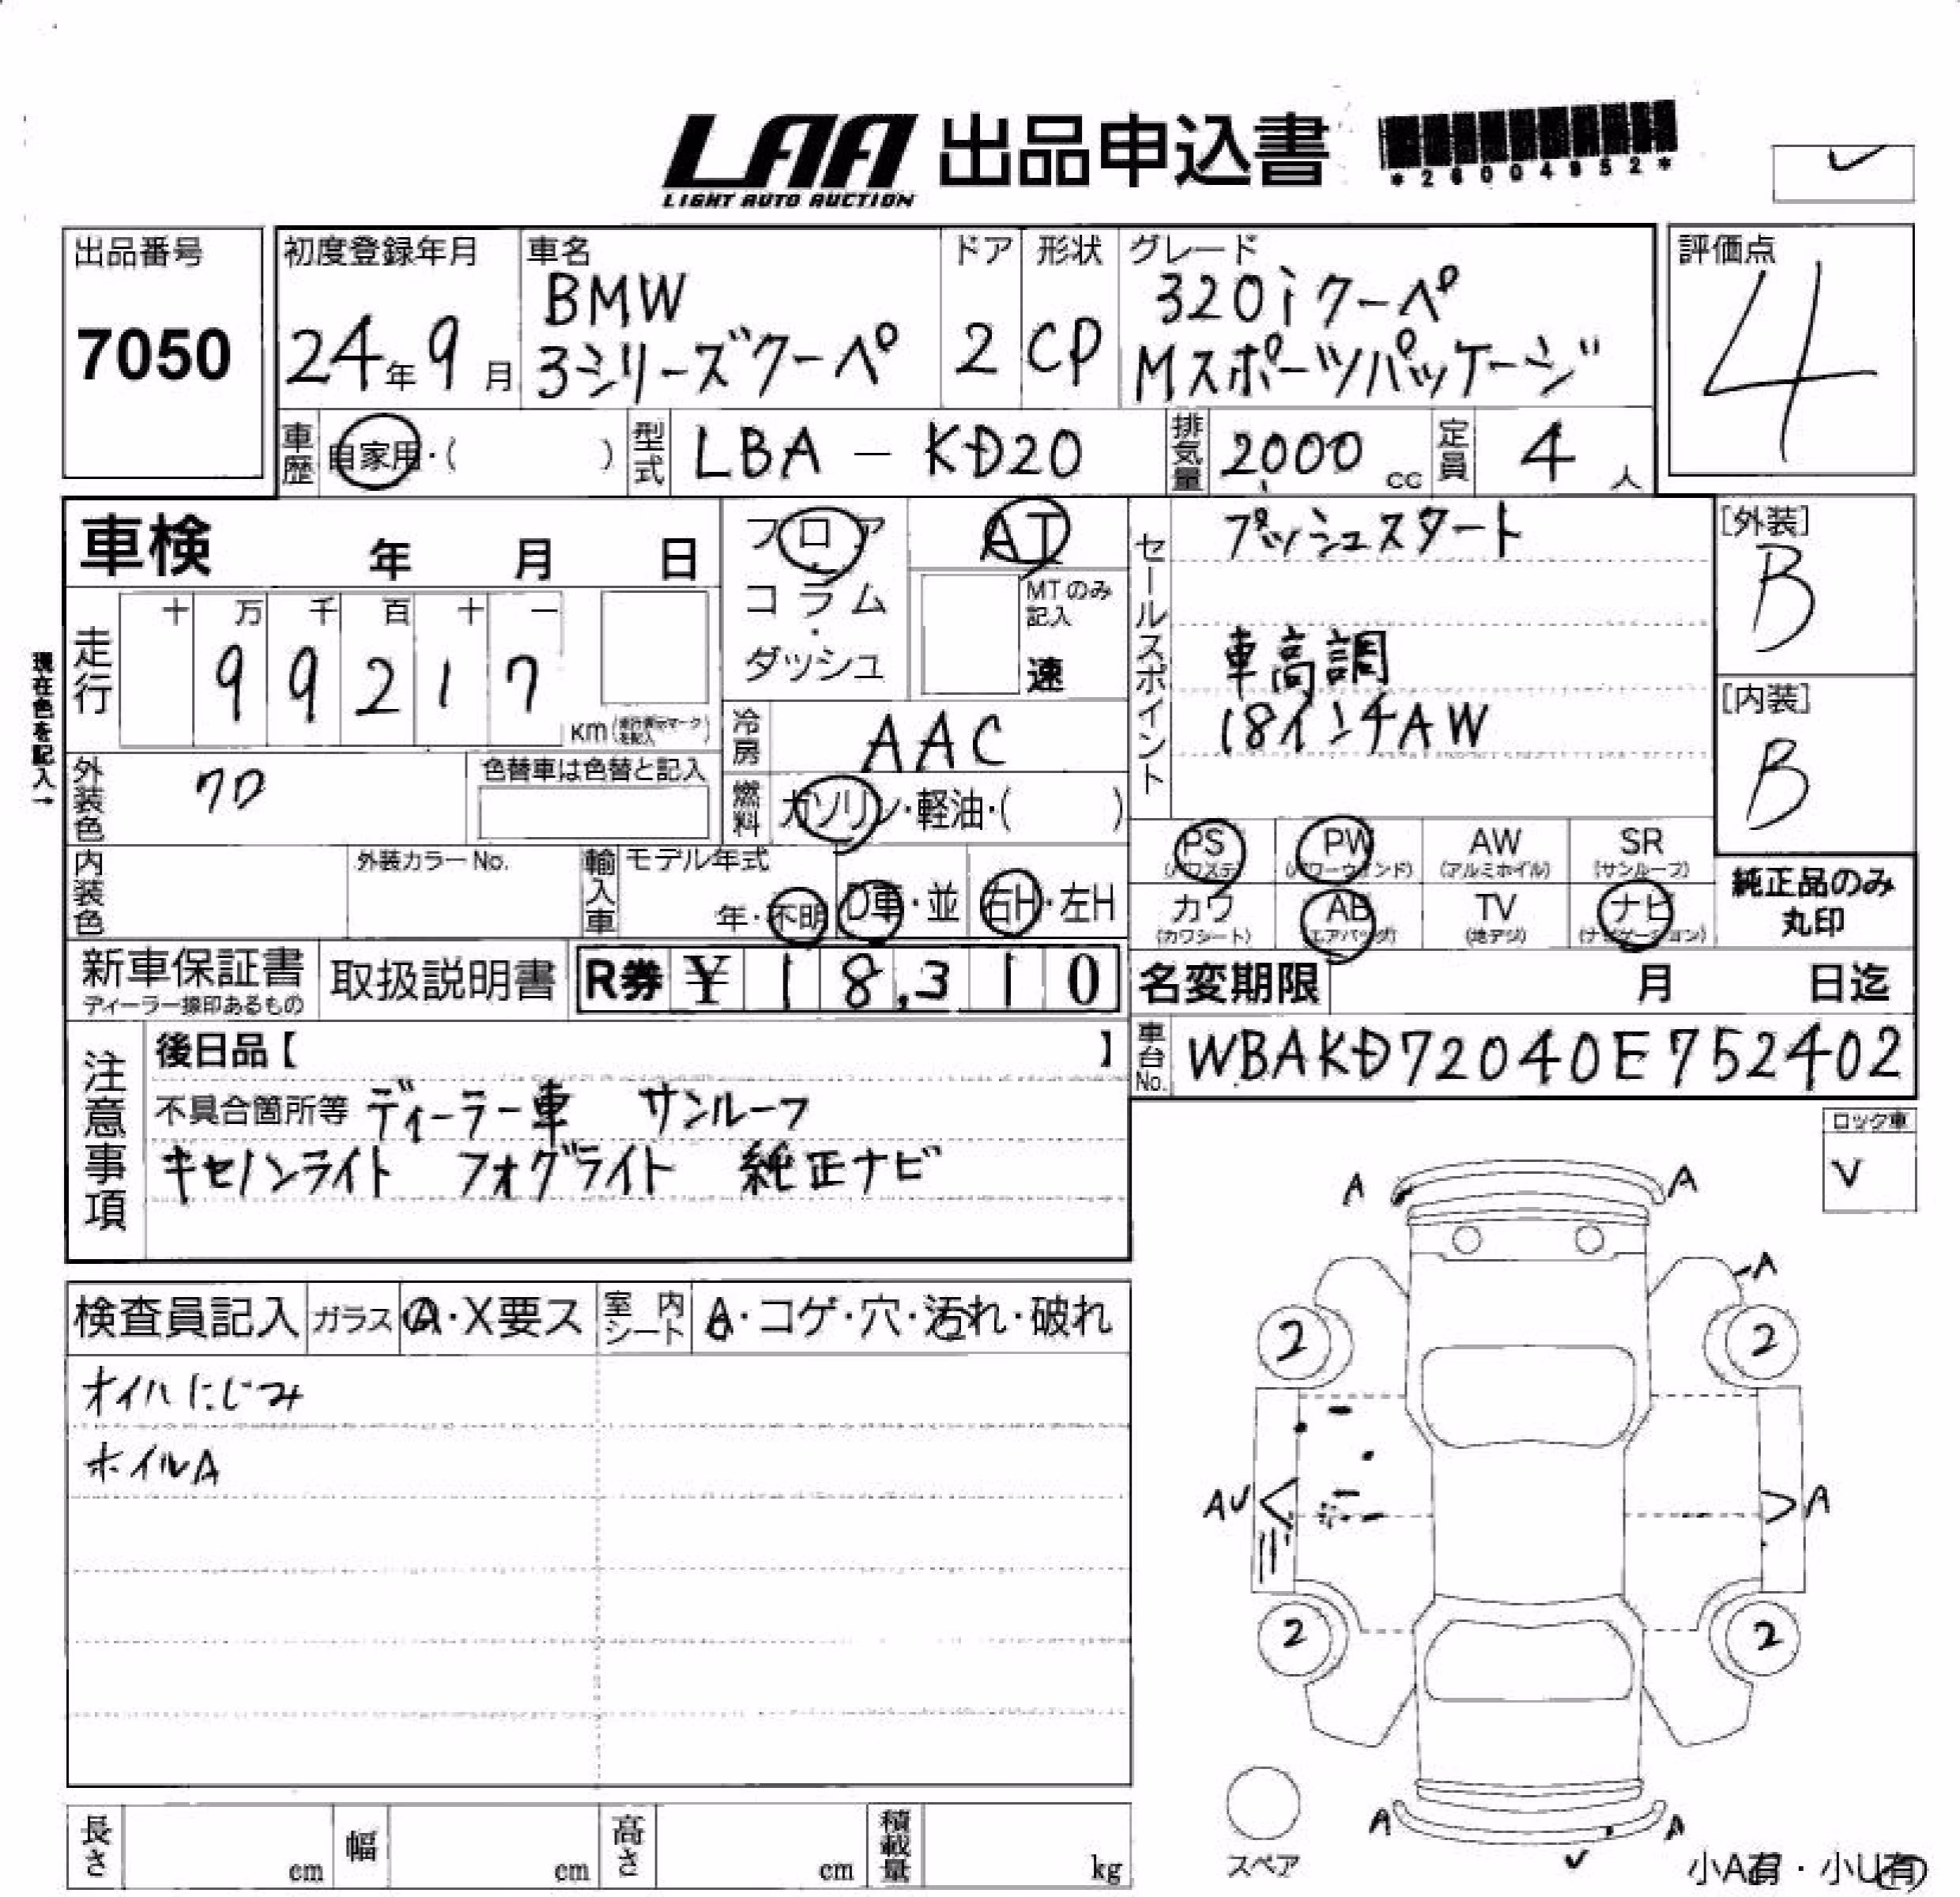 LAA 出品申込書
LIGHT AUTO AUCTION
*26004952*
出品番号
7050
初度登録年月
24年9月
車名
BMW
3シリーズクーペ
ドア
2
形状
CP
グレード
320iクーペ
Mスポーツパッケージ
評価点
4
車歴 自家用・( )
型式 LBA - KD20
排気量 2000 cc
定員 4 人
車検 年 月 日
フロア
コラム
・
ダッシュ
AT
MTのみ
記入
速
現在色を記入→
走行
十 万 千 百 十 一
9 9 2 1 7
km
冷房 AAC
外装色 クロ
色替車は色替と記入
燃料 ガソリン・軽油・( )
内装色
外装カラーNo.
輸入車
モデル年式
年・不明
D車・並
右H・左H
セールスポイント
プッシュスタート
車高調
18インチAW
[外装]
B
[内装]
B
PS PW AW SR
(パワステ) (パワーウィンド) (アルミホイル) (サンルーフ)
カワ AB TV ナビ
(カワシート) (エアバッグ) (地デジ) (ナビゲーション)
純正品のみ
丸印
新車保証書
ディーラー捺印あるもの
取扱説明書
R券 ¥ 18,310
名変期限 月 日迄
車台No. WBAKD72040E752402
注意事項
後日品【 】
不具合箇所等 ディーラー車 サンルーフ
キセノンライト フォグライト 純正ナビ
ロック車
V
検査員記入 ガラス A・X要ス 室内シート A・コゲ・穴・汚れ・破れ
オイルにじみ
ホイルA
A A
A
2 2
AU A
2 2
A A
スペア
小A有・小U有
長さ cm 幅 cm 高さ cm 積載量 kg